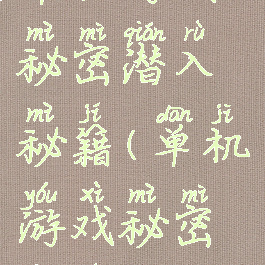 mì mì qián rù
秘密潜入
mì jí dān jī
秘籍(单机
yóu xì mì mì
游戏秘密